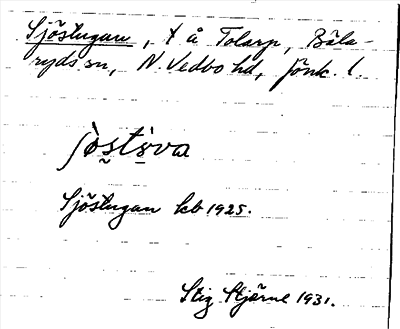 Sjöstugan, t å Tolarp, Bäla-
ryds sn, N. Vedbo hd, Jönk. l.
Sjöstugan kb 1925.
Stig Stjärne 1931.